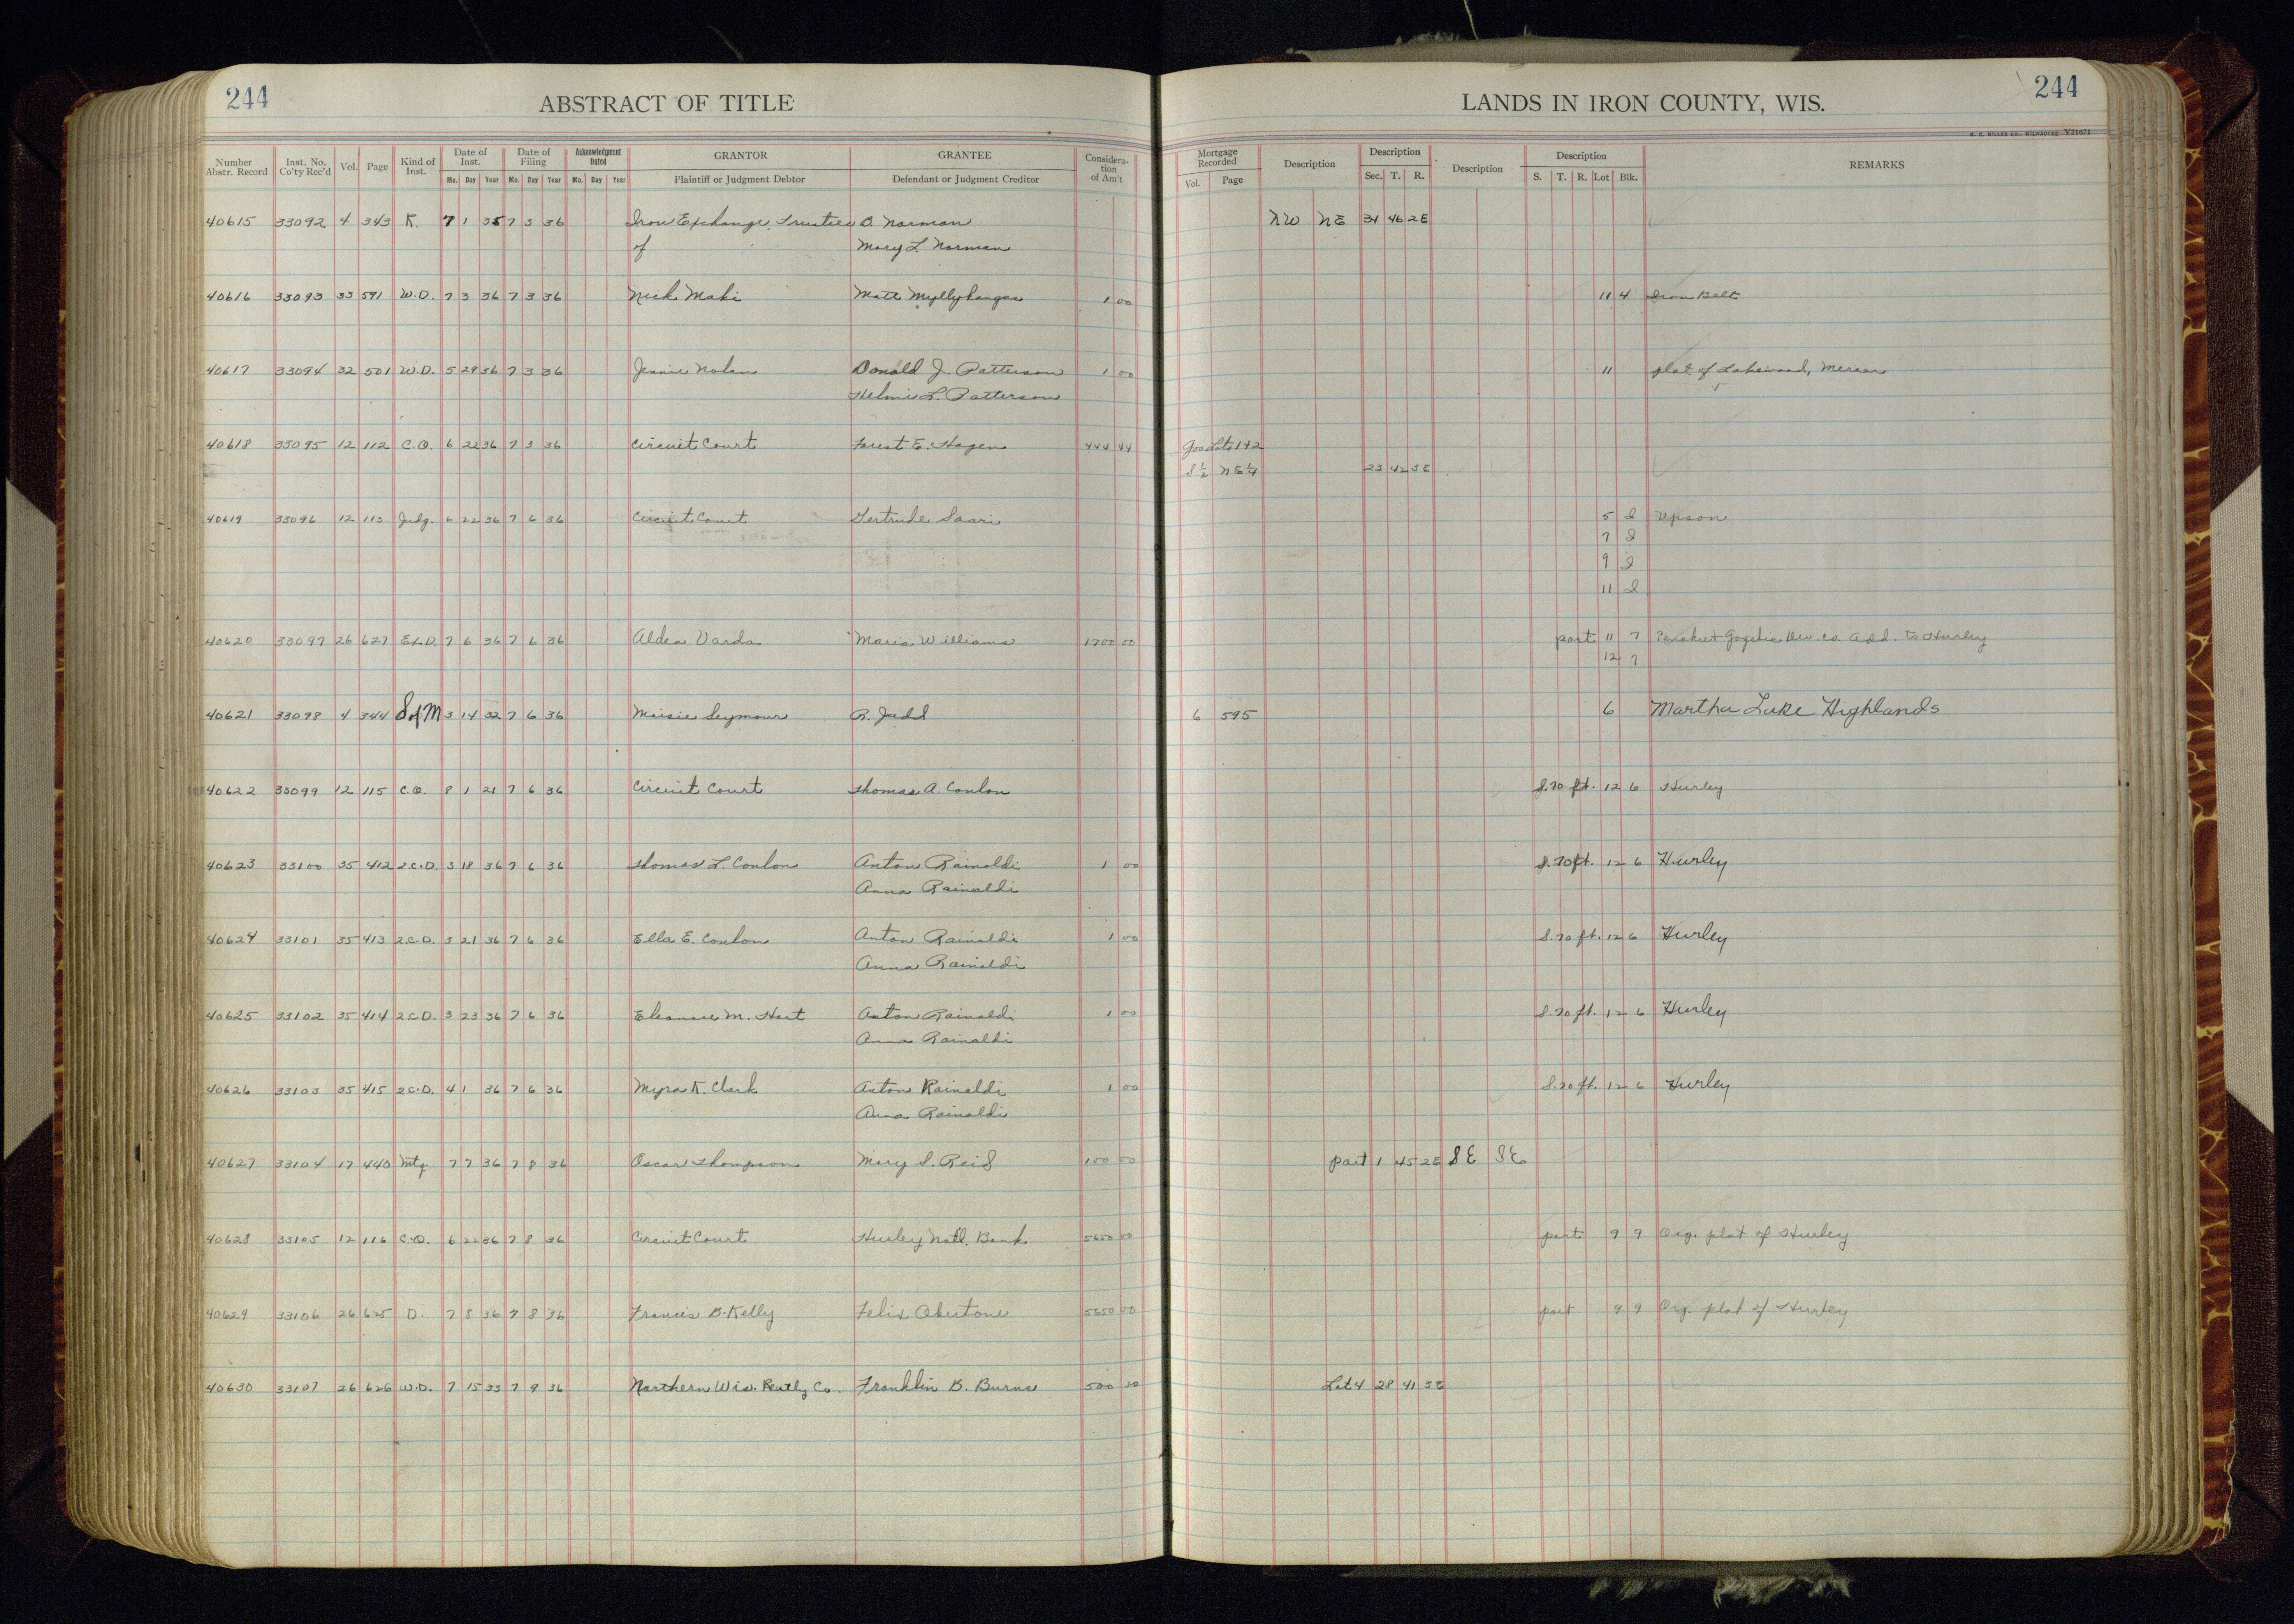 244
ABSTRACT OF TITLE
LANDS IN IRON COUNTY, WIS.
244
H. C. MILLER CO., MILWAUKEE Y21671
Number Abstr. Record Inst. No. Co'ty Rec'd Vol. Page Kind of Inst. Date of Inst. Mo. Day Year Date of Filing Mo. Day Year Acknowledgment Dated Mo. Day Year GRANTOR Plaintiff or Judgment Debtor GRANTEE Defendant or Judgment Creditor Consideration of Am't Mortgage Recorded Vol. Page Description Description Sec. T. R. Description Description S. T. R. Lot Blk. REMARKS
40615 33092 4 343 K. 7 1 35 7 3 36 Iron Exchange, Trustee O. Norman NW NE 31 46 2E
of Mary L. Norman
40616 33093 33 591 W.D. 7 3 36 7 3 36 Nick Maki Matt Myllykangas 1 00 11 4 Iron Belt
40617 33094 32 501 W.D. 5 29 36 7 3 36 Jennie Nolan Donald J. Patterson 1 00 11 plat of Lakewood, Mercer
Helmi L. Patterson
40618 33095 12 112 C.O. 6 22 36 7 3 36 Circuit Court Forest E. Hagen 444 44 Gov Lots 1+2
S 1/2 NE 1/4 23 42 3E
40619 33096 12 113 Judg. 6 22 36 7 6 36 Circuit Court Gertrude Saari 5 2 Upson
7 2
9 2
11 2
40620 33097 26 627 Ex.D. 7 6 36 7 6 36 Aldea Varda Maria Williams 1700 00 part 11 7 Penokee Gogebic Dev. Co. Add. to Hurley
12 7
40621 33098 4 344 S of M 3 14 32 7 6 36 Maisie Seymour R. Jadd 6 595 6 Martha Lake Highlands
40622 33099 12 115 C.O. 8 1 21 7 6 36 Circuit Court Thomas A. Conlon S. 70 ft. 12 6 Hurley
40623 33100 35 412 2.C.D. 3 18 36 7 6 36 Thomas L. Conlon Anton Rainaldi 1 00 S. 70 ft. 12 6 Hurley
Anna Rainaldi
40624 33101 35 413 2.C.D. 3 21 36 7 6 36 Ella E. Conlon Anton Rainaldi 1 00 S. 70 ft. 12 6 Hurley
Anna Rainaldi
40625 33102 35 414 2.C.D. 3 23 36 7 6 36 Eleanore M. Hart Anton Rainaldi 1 00 S. 70 ft. 12 6 Hurley
Anna Rainaldi
40626 33103 35 415 2.C.D. 4 1 36 7 6 36 Myra K. Clark Anton Rainaldi 1 00 S. 70 ft. 12 6 Hurley
Anna Rainaldi
40627 33104 17 440 Mtg. 7 7 36 7 8 36 Oscar Thompson Mary S. Reid 100 00 part 1 45 2E SE SE
40628 33105 12 116 C.O. 6 22 36 7 8 36 Circuit Court Hurley Natl. Bank 5650 00 part 9 9 Org. plat of Hurley
40629 33106 26 625 D. 7 8 36 7 8 36 Francis B. Kelly Felix 5650 00 part 9 9 Org. plat of Hurley
40630 33107 26 626 W.D. 7 15 33 7 9 36 Northern Wis. Realty Co. Franklin B. Burns 500 00 Lot 4 28 41 3E